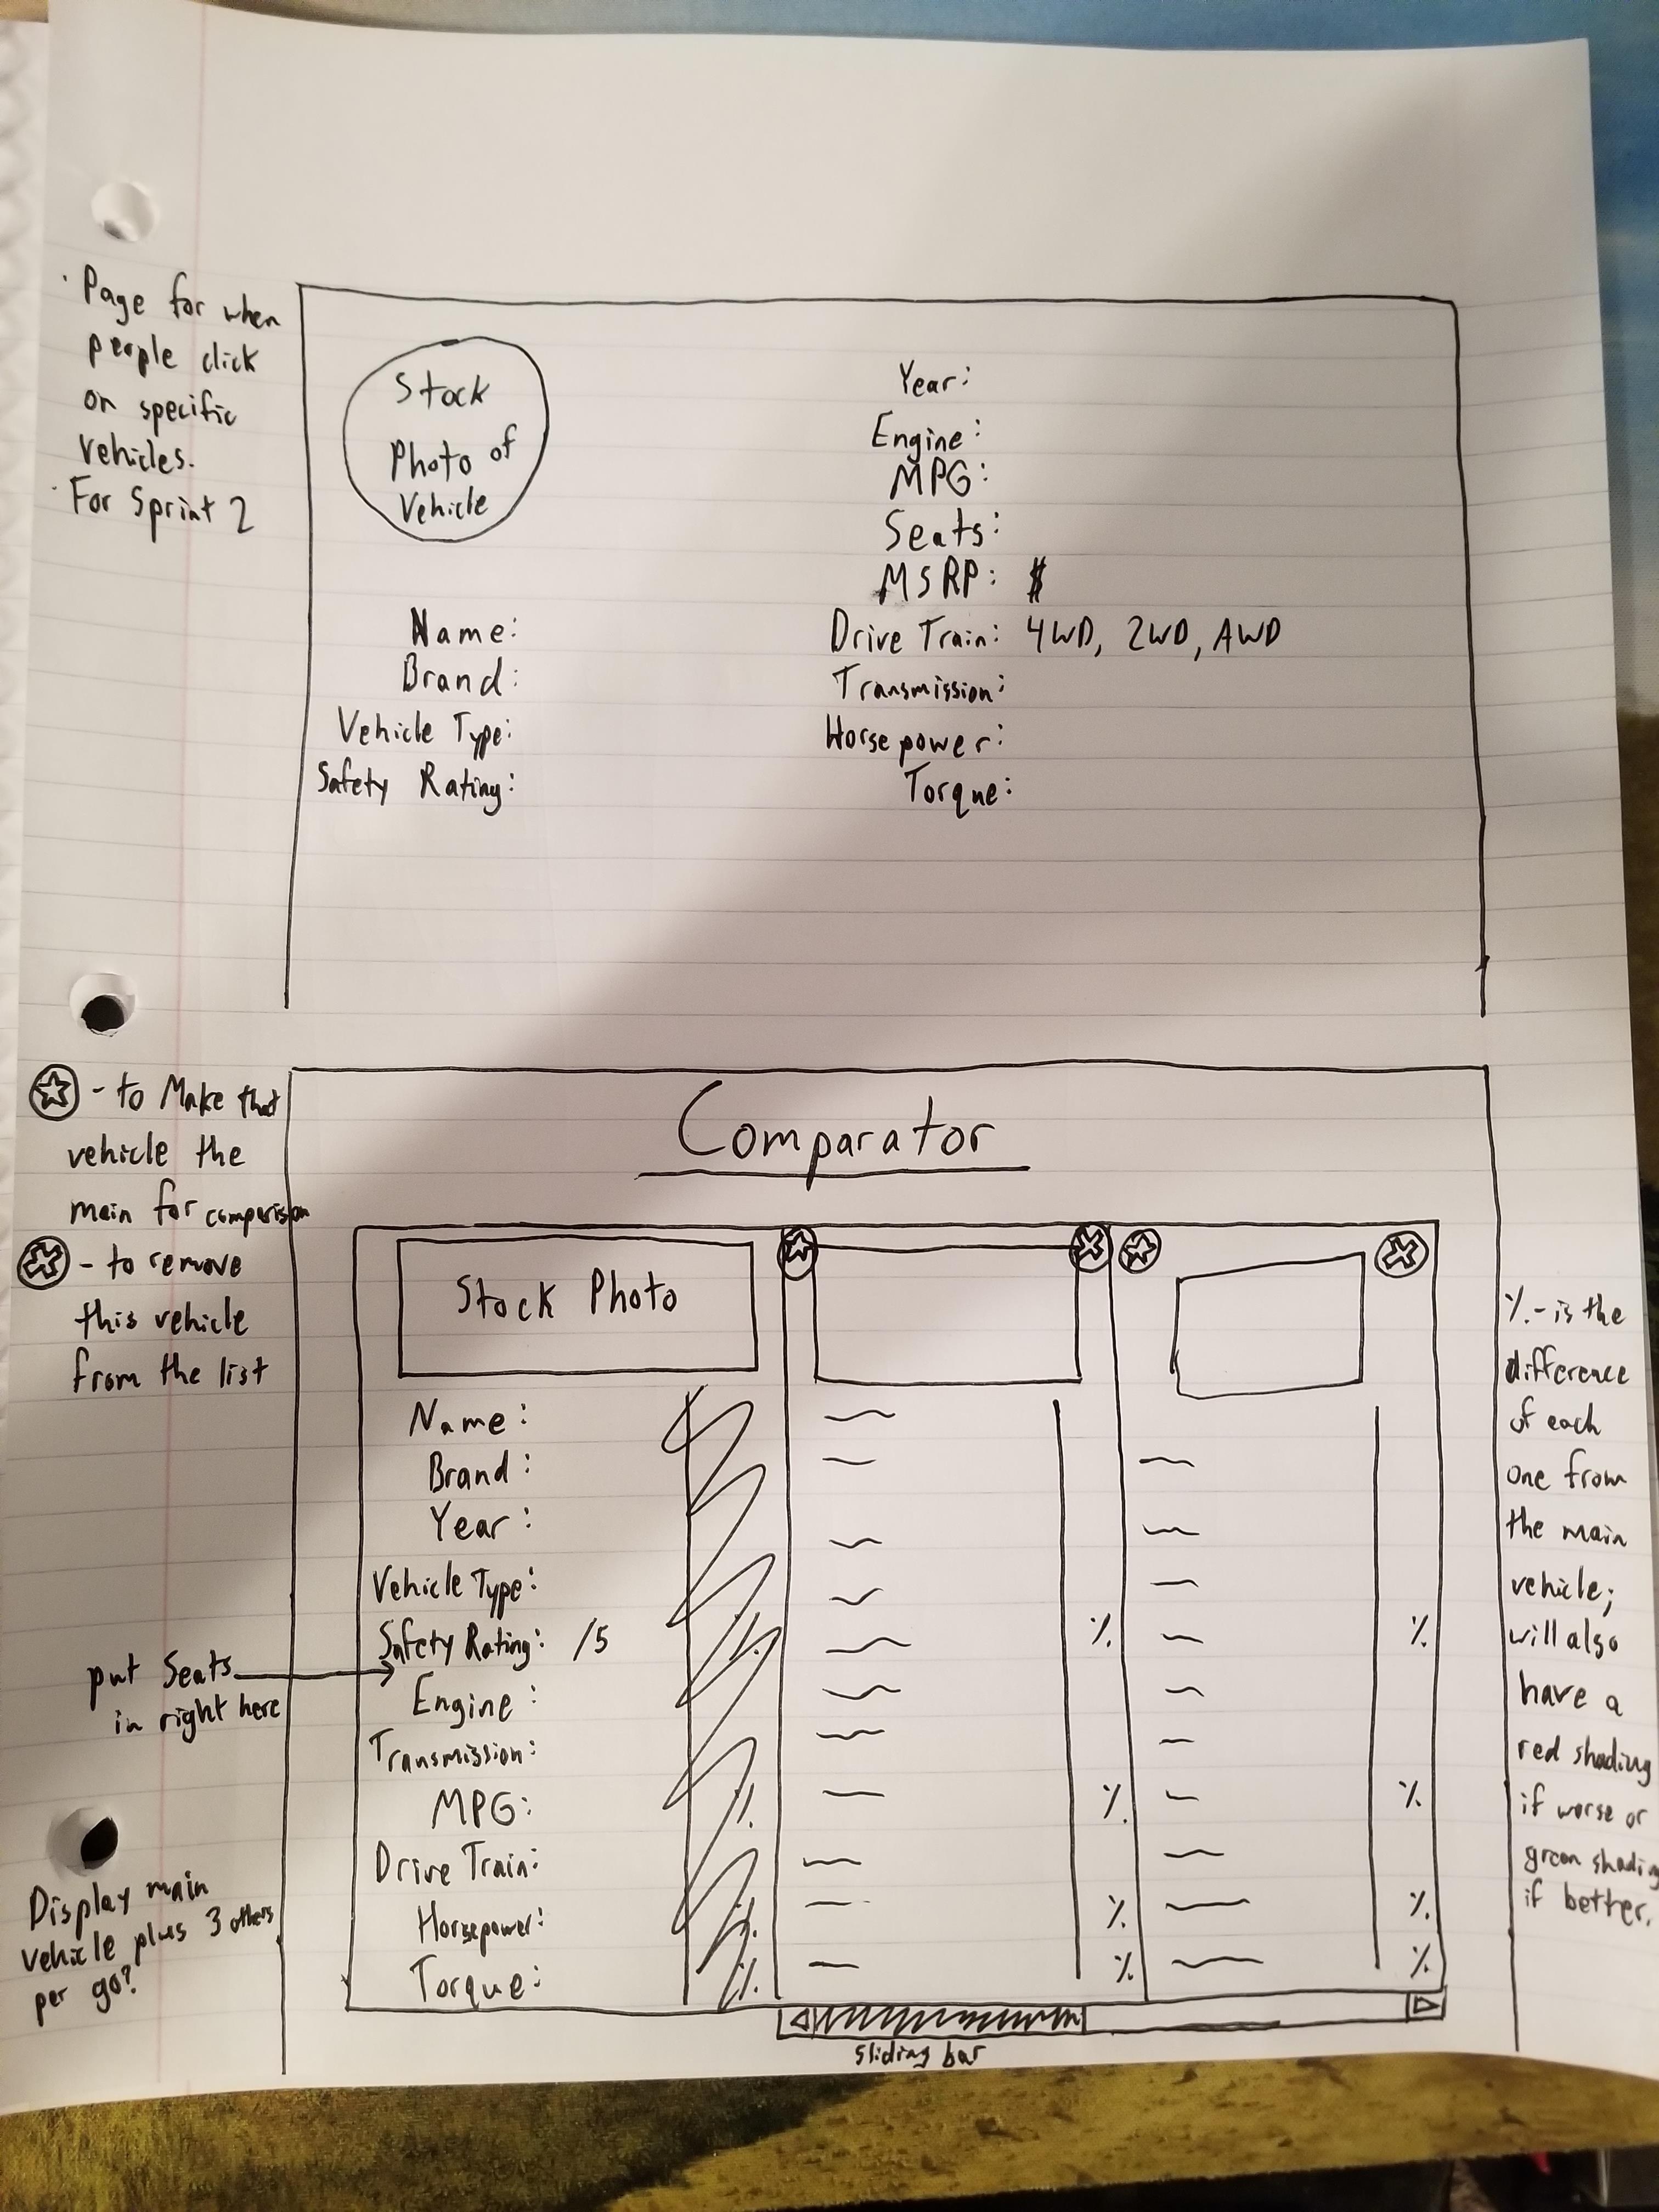 · Page for when
people click
on specific
vehicles.
· For Sprint 2
Stock
Photo of
Vehicle
Name:
Brand:
Vehicle Type:
Safety Rating:
Year:
Engine:
MPG:
Seats:
MSRP: $
Drive Train: 4WD, 2WD, AWD
Transmission:
Horsepower:
Torque:
- to Make that
vehicle the
main for comparision
- to remove
this vehicle
from the list
put Seats
in right here
Display main
vehicle plus 3 others
per go?
Comparator
Stock Photo
Name:
Brand:
Year:
Vehicle Type:
Safety Rating: /5
Engine:
Transmission:
MPG:
Drive Train:
Horsepower:
Torque:
%
%
%
%
%
%
%
%
%
%
%
%
sliding bar
% - is the
difference
of each
one from
the main
vehicle;
will also
have a
red shading
if worse or
green shading
if better.